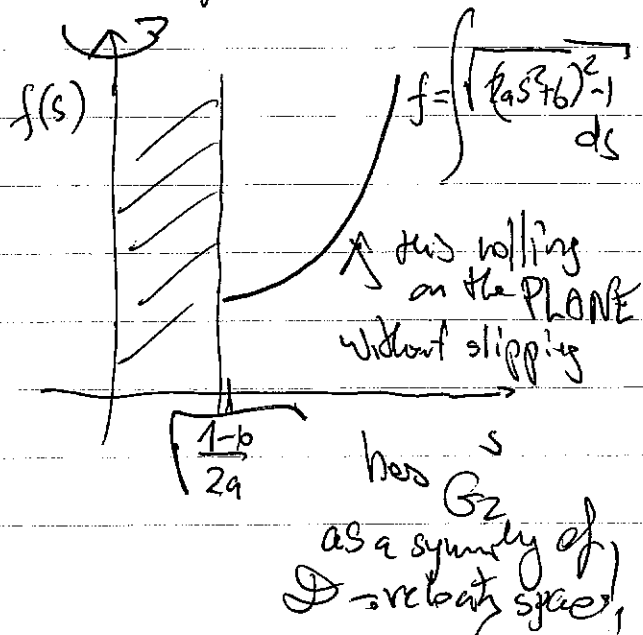 f(s)
f = ∫ √((2as²+b)²-1) ds
this rolling
on the PLANE
without slipping
√((1-b)/2a)
s
has G₂
as a symmetry of
D - velocity space!